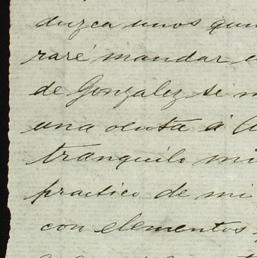 duzca unos quin
raré mandar
de Gonzalez se
una visita á
tranquilo mi
practico de mi
con elementos